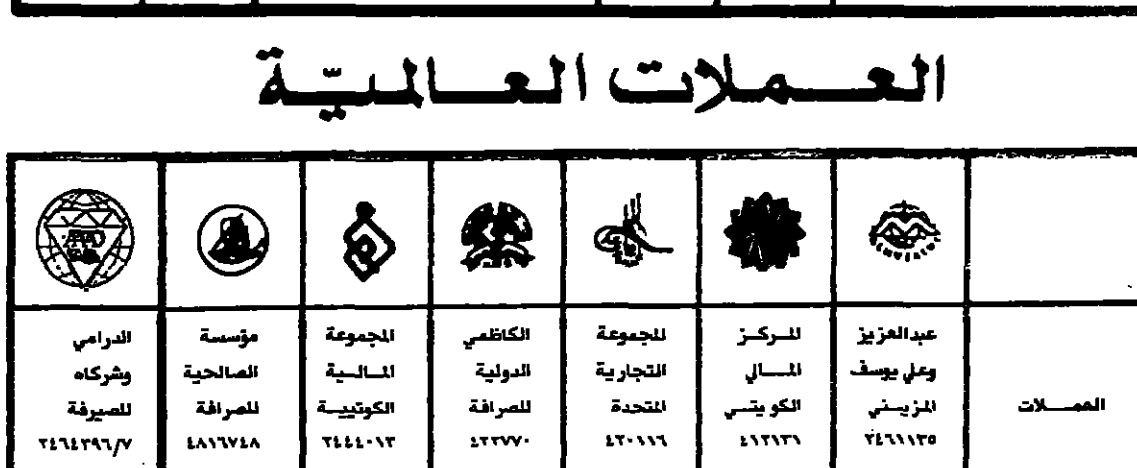 العملات العالميّة
العمـلات
عبدالعزيز
وعلي يوسف
المزيـني
٢٤٦١١٣٥
المـركـز
المـالي
الكويتـي
٤١٢١٣١
المجموعة
التجارية
المتحدة
٤٢٠١١٦
الكاظمي
الدولية
للصرافة
المجموعة
المـالـية
الكويتيـة
٢٤٤٤٠١٣
مؤسسة
الصالحية
للصرافة
٤٨١٦٧٤٨
الدرامي
وشركاه
للصيرفة
٢٤٦٤٣٩٦/٧